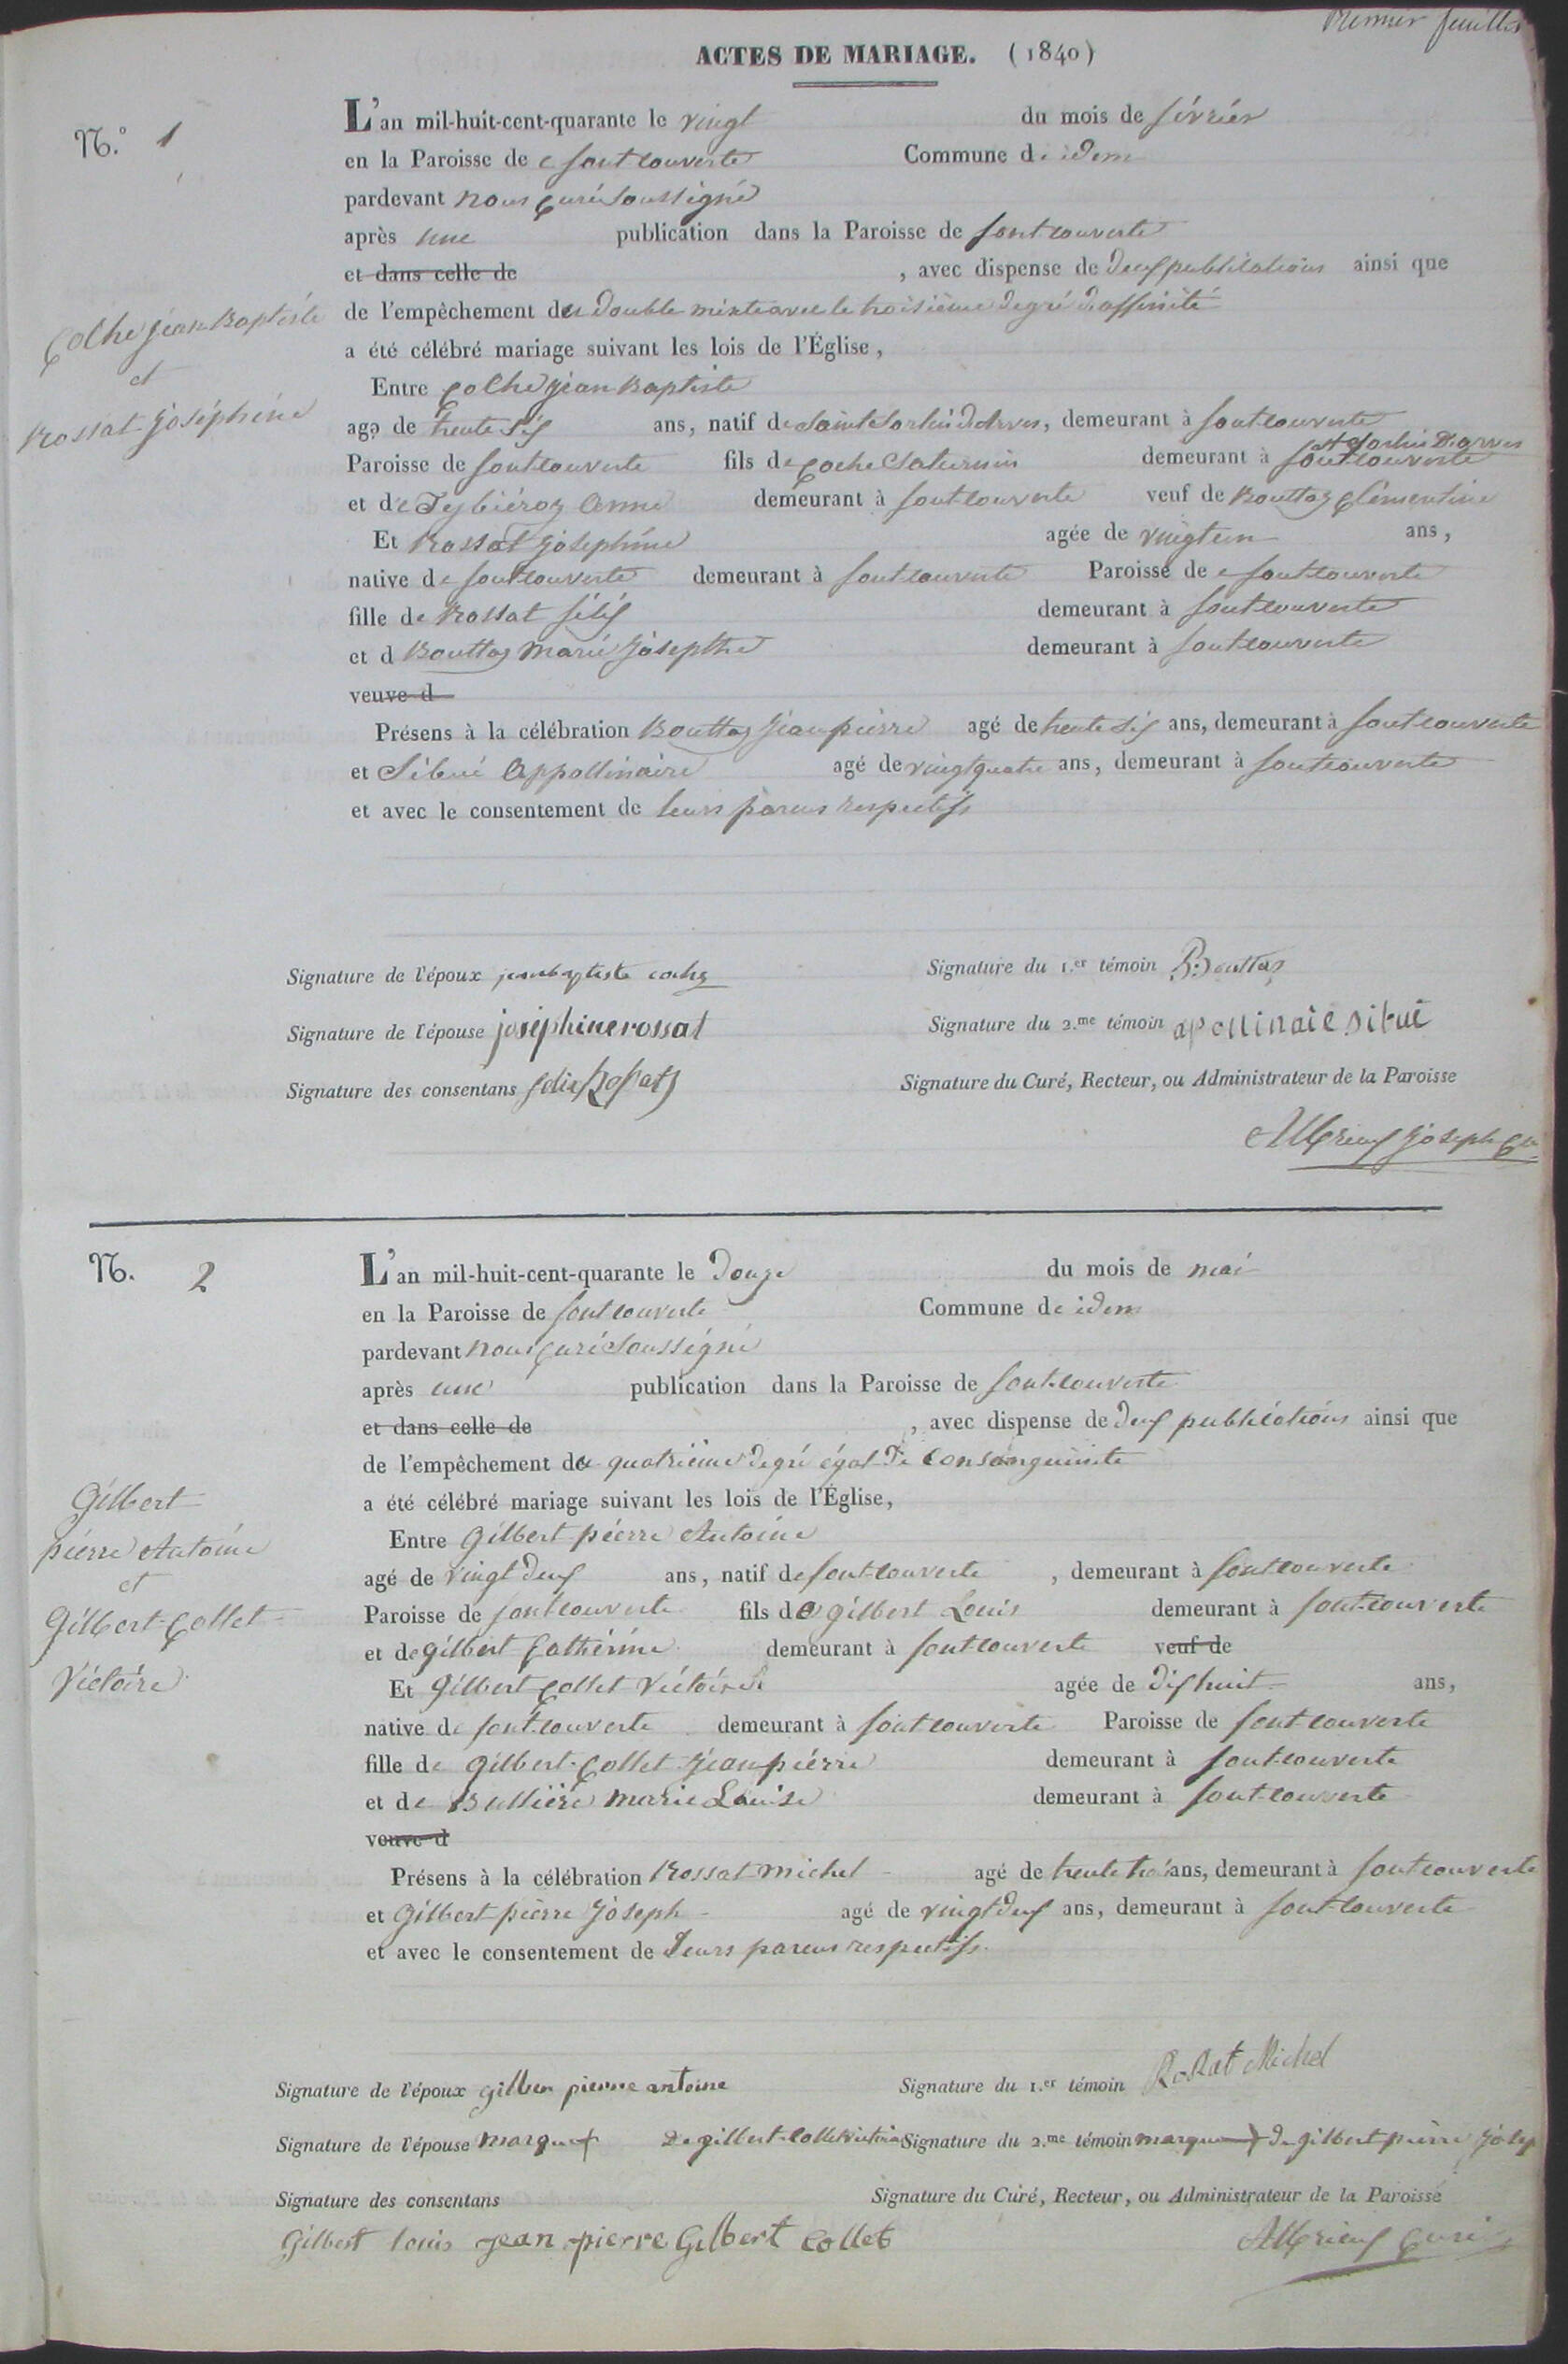 Premier feuillet
ACTES DE MARIAGE. (1840)
N.° 1
L'an mil-huit-cent-quarante le vingt du mois de février
en la Paroisse de fontcouverte Commune de idem
pardevant nous curé soussigné
après une publication dans la Paroisse de fontcouverte
et dans celle de , avec dispense de deux publications ainsi que
de l'empêchement du double mixte avec le troisième degré d'affinité
a été célébré mariage suivant les lois de l'Église,
Coche jean Baptiste
et
Rossat joséphine
Entre Coche jean Baptiste
agé de trente six ans, natif de Saint Sorlin d'Arves, demeurant à fontcouverte
Paroisse de fontcouverte fils de Coche Saturnin demeurant à fontcouverte St Sorlin d'arves
et de anne demeurant à fontcouverte veuf de Bouttaz Clémentine
Et Rossat joséphine agée de vingt un ans,
native de fontcouverte demeurant à fontcouverte Paroisse de fontcouverte
fille de Rossat félix demeurant à fontcouverte
et d Bouttaz marie josephte demeurant à fontcouverte
veuve d
Présens à la célébration Bouttaz jean pierre agé de trente six ans, demeurant à fontcouverte
et Sibué Appollinaire agé de vingt quatre ans, demeurant à fontcouverte
et avec le consentement de leurs parens respectifs
Signature de l'époux jean baptiste coche
Signature du 1.er témoin Bouttaz
Signature de l'épouse joséphine rossat
Signature du 2.me témoin apollinaie sibué
Signature des consentans félix Rossat
Signature du Curé, Recteur, ou Administrateur de la Paroisse
Albrieux joseph Cu
N. 2
L'an mil-huit-cent-quarante le douze du mois de mai
en la Paroisse de fontcouverte Commune de idem
pardevant nous curé soussigné
après une publication dans la Paroisse de fontcouverte
et dans celle de , avec dispense de deux publications ainsi que
de l'empêchement du quatrième degré égal de consanguinité
a été célébré mariage suivant les lois de l'Église,
Gilbert
pierre Antoine
et
Gilbert-Collet
Victoire
Entre Gilbert pierre Antoine
agé de vingt deux ans, natif de fontcouverte , demeurant à fontcouverte
Paroisse de fontcouverte fils de gilbert Louis demeurant à fontcouverte
et de gilbert Catherine demeurant à fontcouverte veuf de
Et Gilbert Collet Victoire agée de dix huit ans,
native de fontcouverte demeurant à fontcouverte Paroisse de fontcouverte
fille de gilbert-Collet jean pierre demeurant à fontcouverte
et de Bellière marie Louise demeurant à fontcouverte
veuve d
Présens à la célébration Rossat michel agé de trente trois ans, demeurant à fontcouverte
et Gilbert pierre joseph agé de vingt deux ans, demeurant à fontcouverte
et avec le consentement de leurs parens respectifs
Signature de l'époux gilber pierre antoine
Signature du 1.er témoin Rossat Michel
Signature de l'épouse marque + de gilbert-Collet victoire
Signature du 2.me témoin marque + de gilbert pierre josep
Signature des consentans
Signature du Curé, Recteur, ou Administrateur de la Paroisse
Gilbert louis jean pierre Gilbert collet
Albrieux Curé